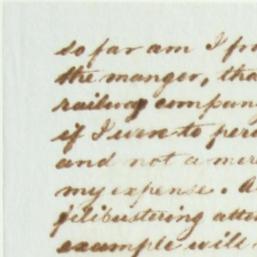 so far am I fr
the manger, tha
railway compan
if I were to per
and not a mere
my expense. A
filibustering atte
example will